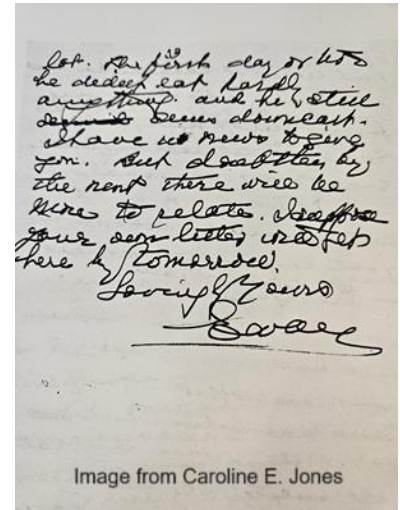 lot. The first day or two
he didn't eat hardly
anything. and he still
seems downcast.
I have no news to give
you. But doubtless by
the next there will be
more to relate. I suppose
your own letter will get
here by tomorrow.
Lovingly Yours
Image from Caroline E. Jones